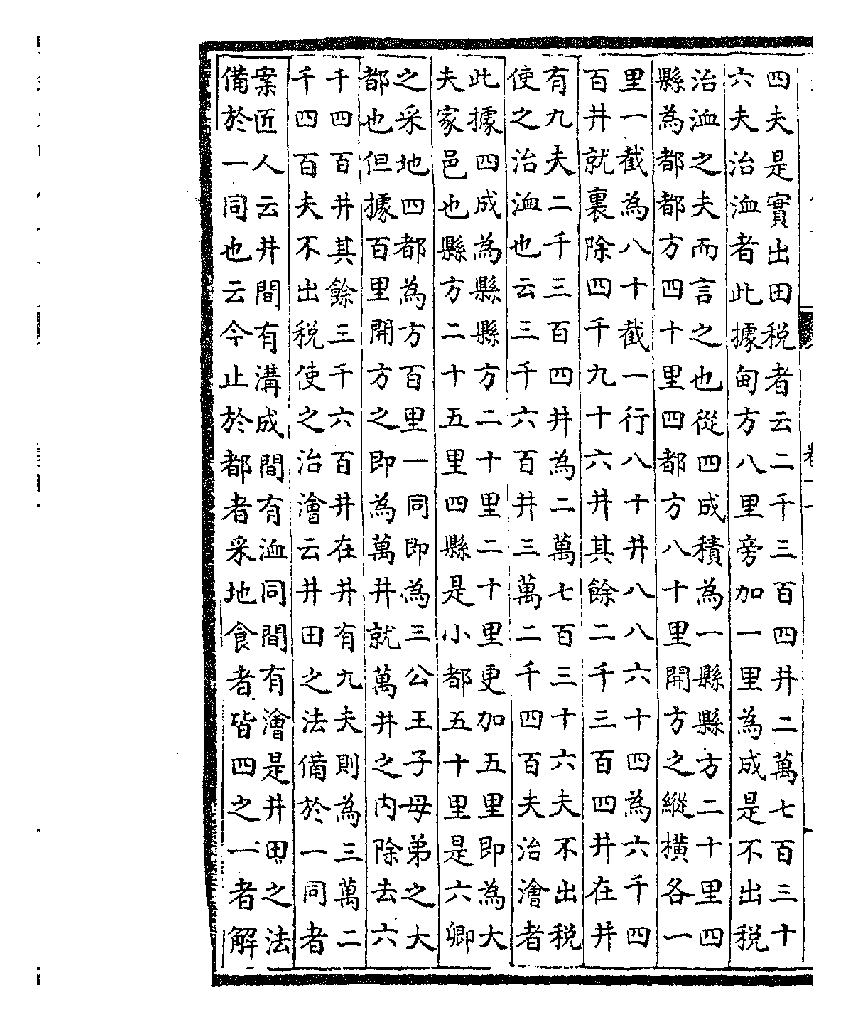 四夫是實出田税者云二千三百四井二萬七百三十
六夫治洫者此據甸方八里旁加一里為成是不出税
治洫之夫而言之也從四成積為一縣縣方二十里四
縣為都都方四十里四都方八十里開方之縱橫各一
里一截為八十截一行八十井八八六十四為六千四
百井就裏除四千九十六井其餘二千三百四井在井
有九夫二千三百四井為二萬七百三十六夫不出税
使之治洫也云三千六百井三萬二千四百夫治澮者
此據四成為縣縣方二十里二十里更加五里即為大
夫家邑也縣方二十五里四縣是小都五十里是六卿
之采地四都為方百里一同即為三公王子母弟之大
都也但據百里開方之即為萬井就萬井之内除去六
千四百井其餘三千六百井在井有九夫則為三萬二
千四百夫不出税使之治澮云井田之法備於一同者
案匠人云井間有溝成間有洫同間有澮是井田之法
備於一同也云今止於都者采地食者皆四之一者解